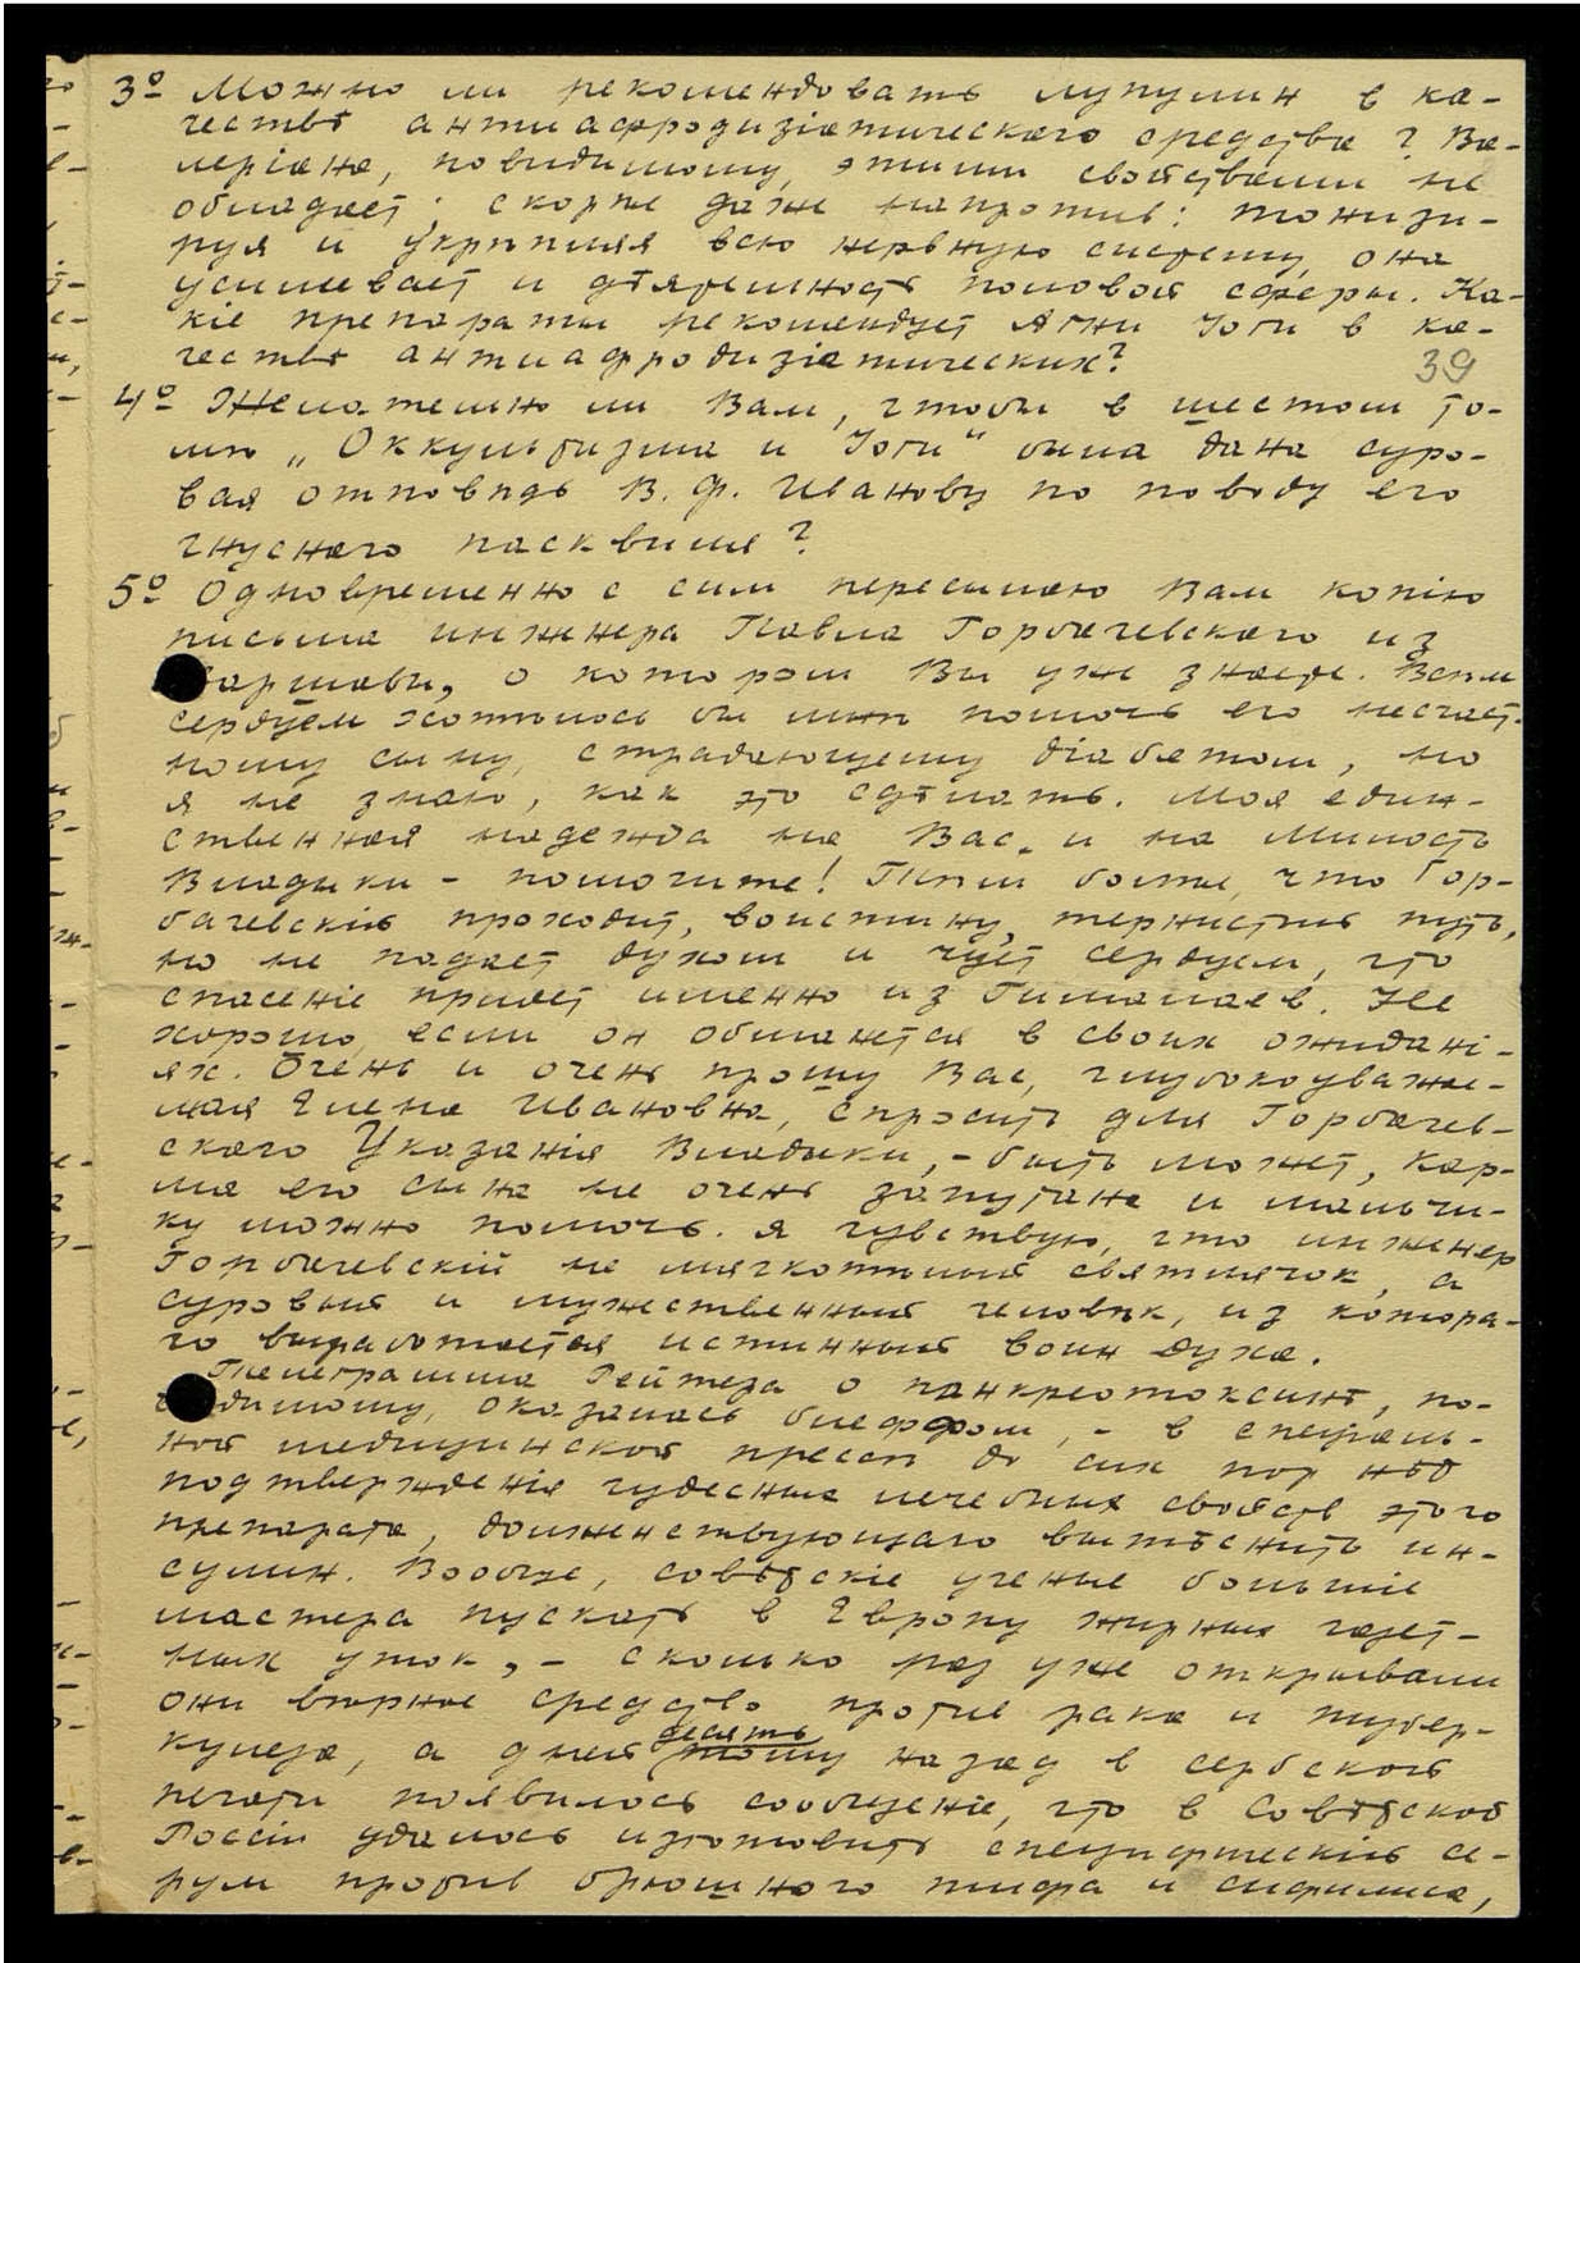 3º Можно ли рекомендовать лупулин в ка-
чествѣ антиафродизіатическаго средства? Ва-
леріана, повидимому, этими свойствами не
обладает; скорѣе даже напротив: тонизи-
руя и укрѣпляя всю нервную систему, она
усиливает и дѣятельность половой сферы. Ка-
кіе препараты рекомендует Агни Іоги в ка-
чествѣ антиафродизіатических?
39
4º Желательно ли Вам, чтобы в шестом то-
мѣ „Оккультизма и Іоги" была дана суро-
вая отповѣдь В. Ф. Иванову по поводу его
гнуснаго пасквиля?
5º Одновременно с сим пересылаю Вам копію
письма инженера Павла Горбачевскаго из
аршавы, о котором Вы уже знаете. Всѣм
сердцем хотѣлось бы мнѣ помочь его несчаст-
ному сыну, страдающему діабетом, но
я не знаю, как это сдѣлать. Моя един-
ственная надежда на Вас и на Милость
Владыки - помогите! Тѣм болѣе, что Гор-
бачевскій проходит, воистину, тернистый путь,
но не падает духом и чует сердцем, что
спасеніе придет именно из Гималаев. Не
хорошо, если он обманется в своих ожидані-
ях. Очень и очень прошу Вас, глубокоуважае-
мая Елена Ивановна, спросить для Горбачев-
скаго Указанія Владыки, - быть может, кар-
ма его сына не очень запутана и мальчи-
ку можно помочь. Я чувствую, что инженер
Горбачевскій не мягкотѣлый святлячок, а
суровый и мужественный человѣк, из котора-
го выработается истинный воин духа.
Телеграмма Рейтера о панкреотоксинѣ, по-
димому, оказалась блеффом, - в спеціаль-
ной медицинской прессѣ до сих пор нѣт
подтвержденія чудесных лечебных свойств этого
препарата, долженствующаго вытѣснить ин-
сулин. Вообще, совѣтскіе ученые большіе
мастера пускать в Европу жирных газет-
ных уток, - сколько раз уже открывали
они вѣрное средство против рака и тубер-
кулеза, а дней десять тому назад в сербской
печати появилось сообщеніе, что в Совѣтской
Россіи удалось изготовить специфическій се-
рум против брюшного тифа и сифилиса,